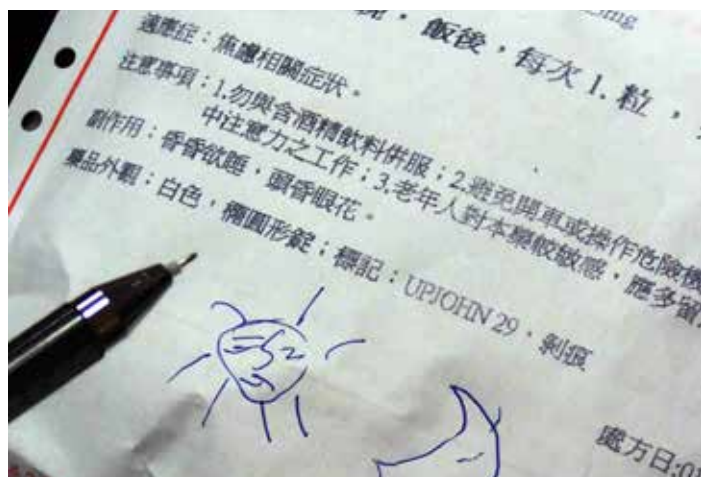 飯後，每次 1. 粒，
適應症：焦慮相關症狀。
注意事項：1.勿與含酒精飲料併服；2.避免開車或操作危險機
中注意力之工作；3.老年人對本藥較敏感，應多留
副作用：昏昏欲睡，頭昏眼花。
藥品外觀：白色，橢圓形錠；標記：UPJOHN 29，剝痕
處方日:0